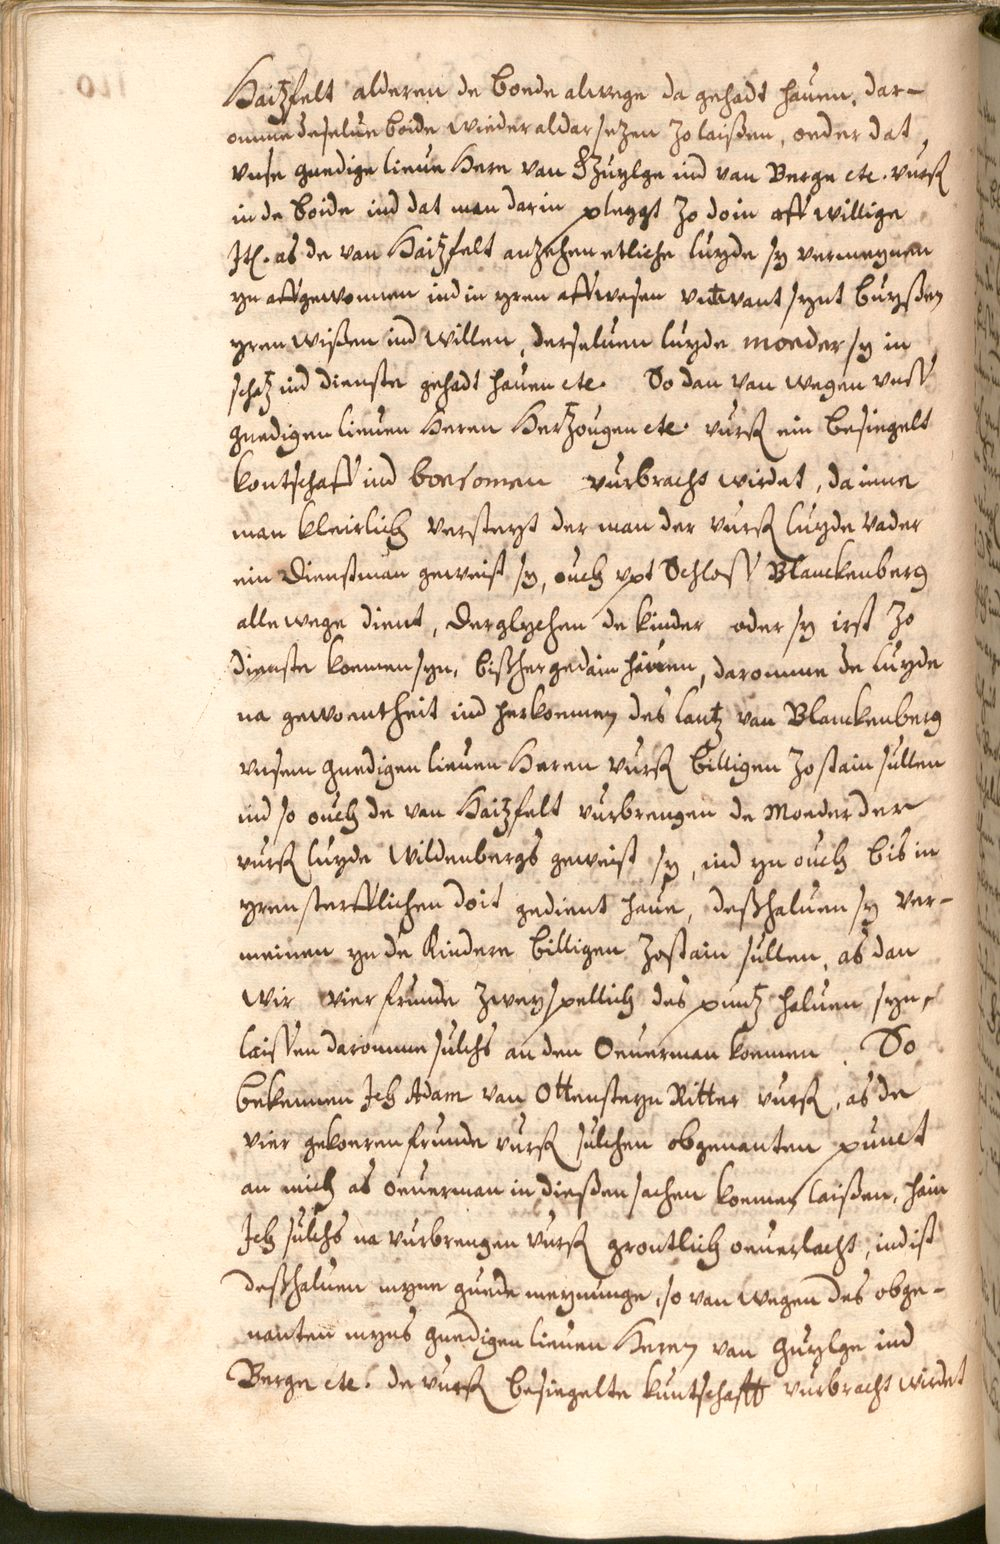 Haitzfelt alderen de boede alwege da gehadt hauen, dar-
omme deselue boide wieder aldar setzen zo laißen, oeder dat
vnse gnedige lieue Here van Guylge ind van Berge etc. vurß
in de boide ind dat man darin pleggt zo doin afwillige
It(. as de van Haitzfelt anzehen etliche luyde sy vermeynen
yn affgewonnen ind in yren affwesen vntwant synt buyßen
yren wißen ind willen, derseluen luyde moeder sy in
schatz ind dienste gehadt hauen etc. So dan van wegen vnss
gnedigen lieuen Heren Hertzougen etc. vurß ein besiegelt
kontschaff ind boesomen vurbracht wirdet, da inne
man kleirlich versteyt der man der vurß luyde vader
ein dienstman geweist sy, ouch vpt Schloss Blanckenberg
allewege dient, derglychen de kinder oder sy irst zo
dienste koemen syn, bißher gedain hauen, daromme de luyde
na gewoentheit ind herkoemen des lantz van Blanckenberg
vnsem gnedigen lieuen Heren vurß billigen zostain sullen
ind so ouch de van Haitzfelt vurbrengen de Moeder der
vurß luyde Wildenbergs geweist sy, ind yn ouch bis in
yren sterfflichen doit gedient haue, deßhaluen sy ver-
meinen yn de Kindere billigen zostain sullen, as dan
wir vier frunde zweyspellich des puntz haluen syn,
laissen daromme sulchs an den Oeuerman koemen. So
bekennen Ich Adam van Ottensteyn Ritter vurß, as de
vier gekoeren frunde vurß sulchen obgenanten punct
an mich as oeuerman in dießen sachen koemen laißen, hain
Ich sulchs na vurbrengen vurß grontlich oeuerlacht, ind ist
deßhaluen myne guede meynunge, so van wegen des obge-
nanten myns gnedigen lieuen Heren van Guylge ind
Berge etc. de vurß besiegelte kuntschafft vurbracht wirdet